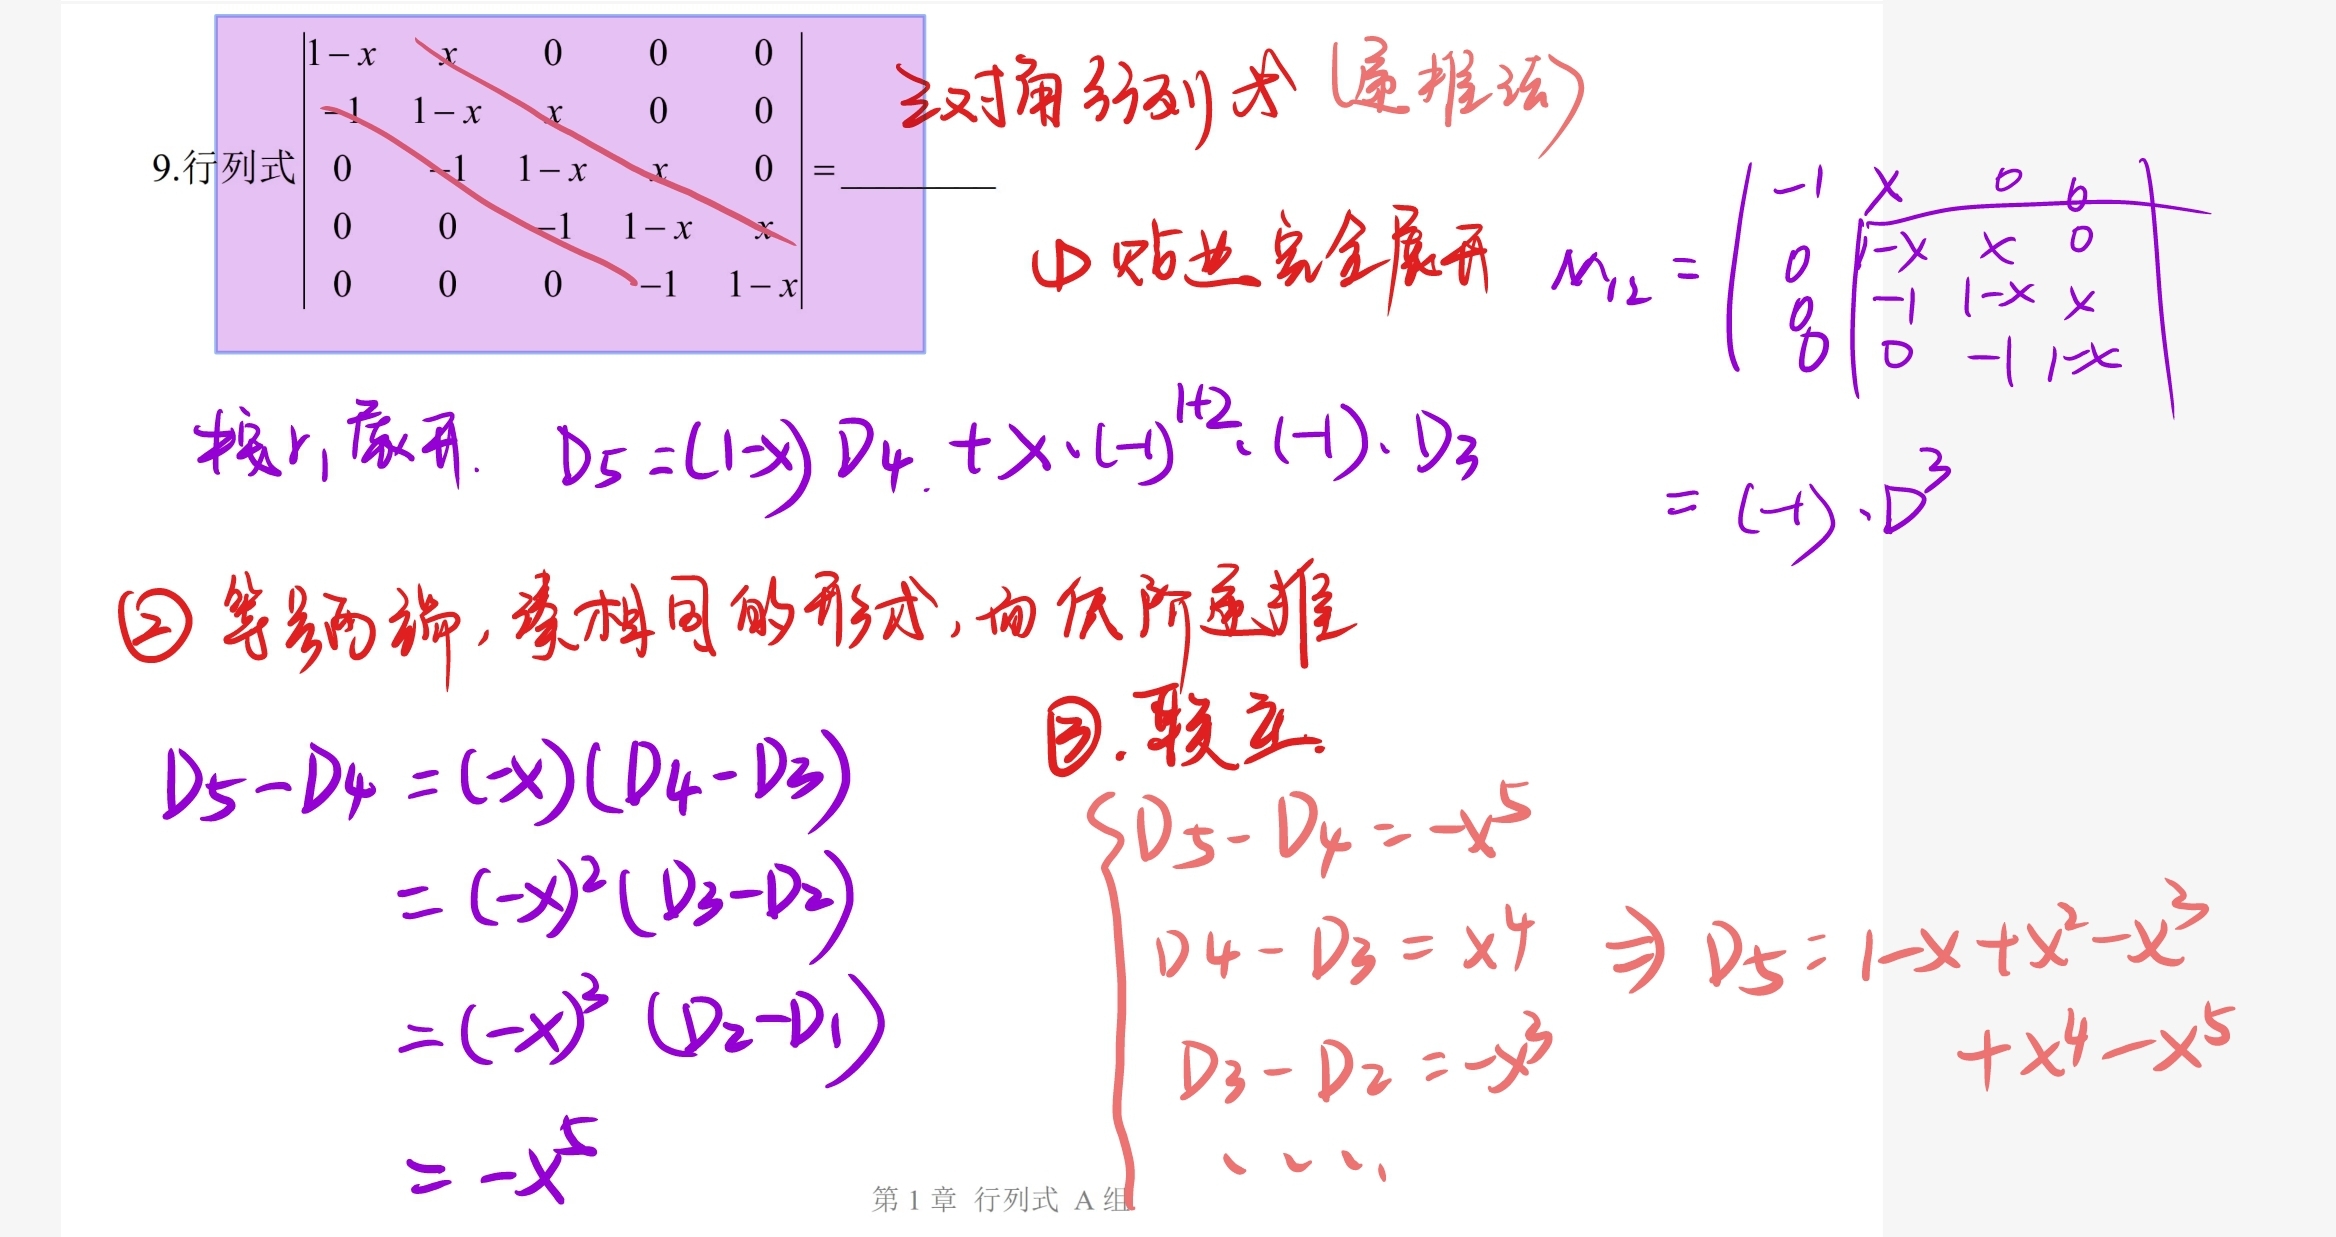 1−x x 0 0 0
−1 1−x x 0 0
9.行列式 0 −1 1−x x 0 = ______
0 0 −1 1−x x
0 0 0 −1 1−x
三对角行列式(递推法)
① 贴边完全展开
M12 =
-1 x 0 0
0 1-x x 0
0 -1 1-x x
0 0 -1 1-x
= (-1)·D^3
按r1展开. D5=(1-x)D4.+x·(-1)^1+2·(-1)·D3
② 等号两端,凑相同的形式,向低阶递推
D5-D4=(-x)(D4-D3)
=(-x)^2(D3-D2)
=(-x)^3(D2-D1)
=-x^5
③.联立.
{D5-D4=-x^5
D4-D3=x^4 ⇒ D5=1-x+x^2-x^3
+x^4-x^5
D3-D2=-x^3
....
第 1 章 行列式 A 组